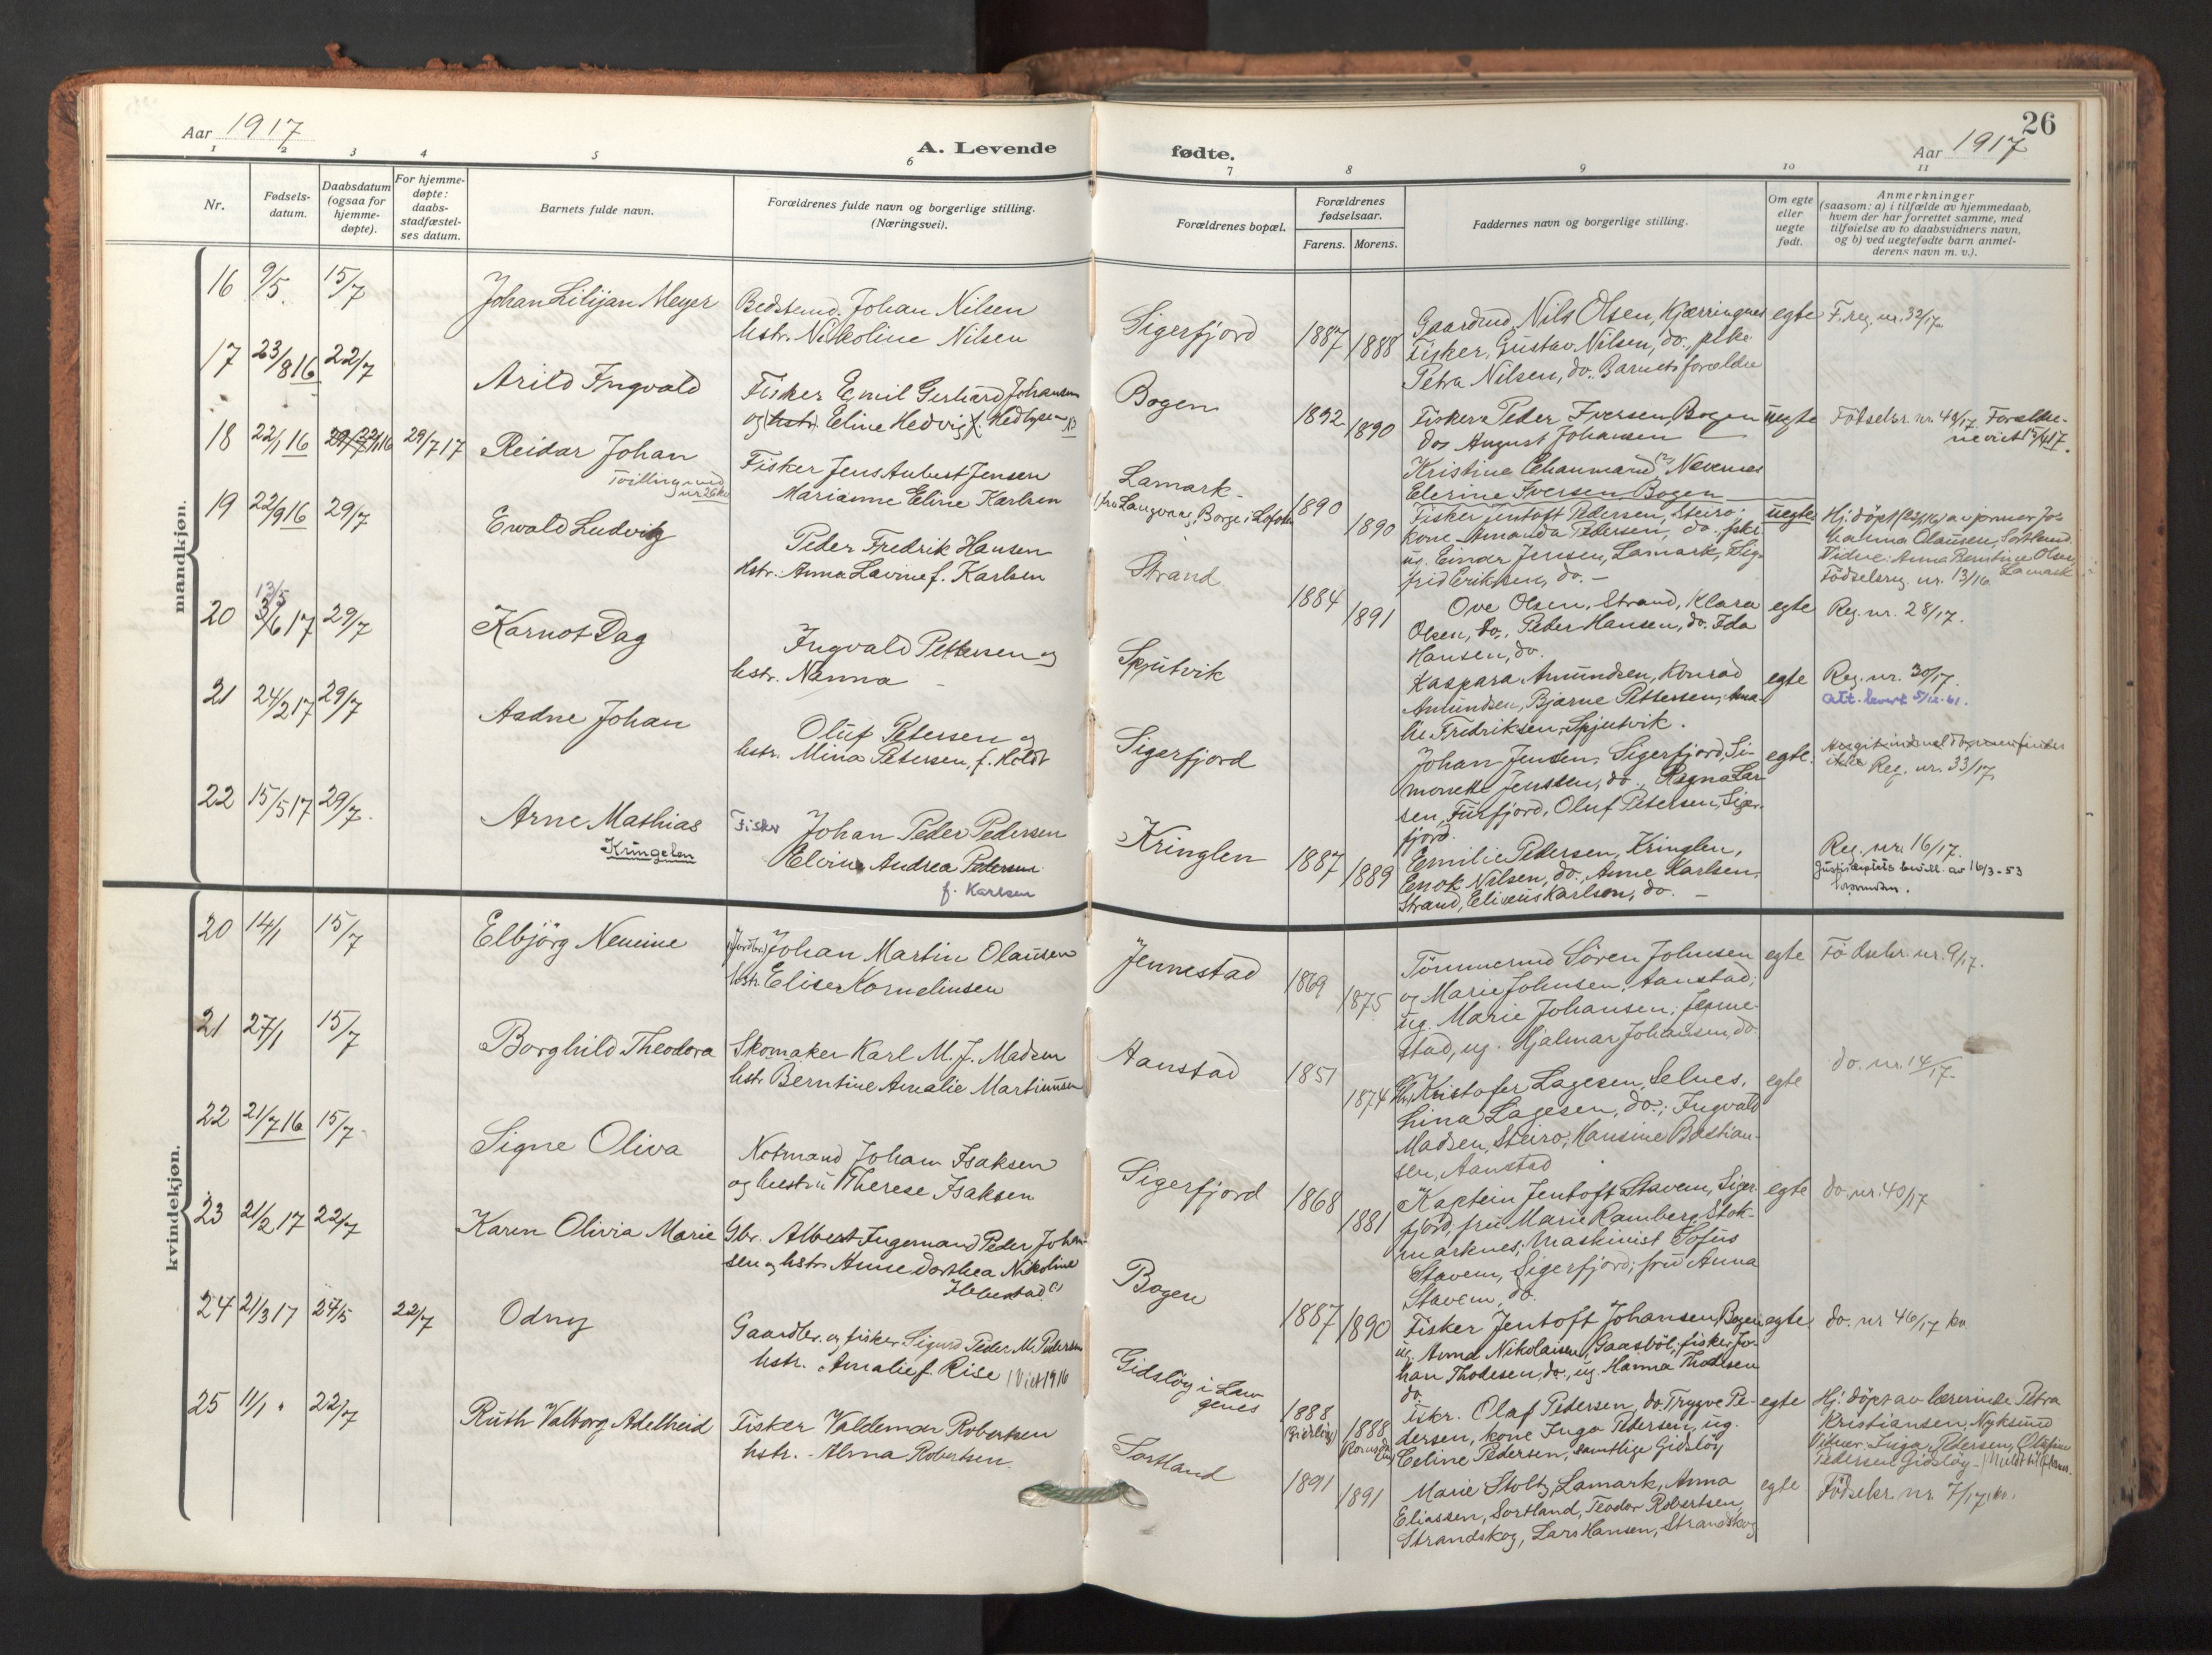 Aar 1917
A. Levende
1 2 3 4 5 6
Nr.
Fødsels-
datum.
Daabsdatum
(ogsaa for
hjemme-
døpte).
For hjemme-
døpte:
daabs-
stadfæstel-
ses datum.
Barnets fulde navn.
Forældrenes fulde navn og borgerlige stilling.
(Næringsvei).
mandkjøn.
16 9/5. 15/7 Johan Lilijan Meyer Bedstemd. Johan Nilsen
hstr. Nikoline Nilsen
17 23/8 16 22/7 Arild Ingvald Fisker Emil Gerhard Johansen
og (hstr.) Eline Hedvig
18 22/1 16 29/7 17 Reidar Johan Fisker Jens Aubert Jensen
Tvilling
Marianne Eline Karlsen
19 22/9 16 29/7 Ewald Ludvig Peder Fredrik Hansen
hstr. Anna Lavine f. Karlsen
13/5
20 3/6 17 29/7 Karnot Dag Ingvald Pettersen og
hstr. Nanna
21 24/2 17 29/7 Asdne Johan Oluf Petersen og
hstr. Mina Petersen, f. Holdt
22 15/5 17 29/7. Arne Mathias Fisker Johan Peder Pedersen
Kringelen
Elvine Andrea Pedersen
f. Karlsen
kvindekjøn.
20 14/1 15/7 Elbjörg Nemine (Jordbr.) Johan Martin Olausen
hstr. Elise Kornelinsen
21 27/1 15/7 Borghild Theodora Skomaker Karl M. J. Madsen
hstr Berntine Amalie Martinusen
22 21/7 16 15/7. Signe Oliva Notmand Johan Isaksen
og hustru Therese Isaksen
23 21/2 17 22/7 Karen Olivia Marie Gbr. Albert Ingemand Peder Johan-
sen og hstr. Anne Dorthea Nikoline
24 21/3 17 27/5 22/7 Odny Gaardbr. og fisker Sigurd Peder M. Pedersen
hstr. Amalie f. Rise (Viet 1916
25 11/1 " 22/7 Ruth Valborg Adelheid Fisker Valdemar Robertsen
hstr. Alma Robertsen.
26
fødte.
Aar 1917
7 8 9 10 11
Forældrenes bopæl.
Forældrenes
fødselsaar.
Farens. Morens.
Faddernes navn og borgerlige stilling.
Om egte
eller
uegte
født.
Anmerkninger
(saasom: a) i tilfælde av hjemmedaab,
hvem der har forrettet samme, med
tilføielse av to daabsvidners navn,
og b) ved uegtefødte barn anmel-
derens navn m. v.).
Sigerfjord 1887 1888 Gaardmd Nils Olsen, Kjærringnes egte F. reg. nr. 32/17
Fisker, Gustav Nilsen, do., pike
Petra Nilsen, do. Barnets forældre
Bogen 1892 1890 Fisker Peder Iversen, Bogen uegte Fötselsr. nr. 49/17 Forældre-
do August Johansen
ne viet 15/4 17.
Kristine Nevernes
Elerine Iversen Bogen
Lamark-
(fra Langvaag, Borge i Lofoten 1890 1890 Fisker Jentoft Pedersen, Steiro; uegte Hj. döpt av jormor Jo-
kone Amanda Pedersen, do., fiski
hanna Olausen, Sortland.
ug. Einar Jensen, Lamark, Sig-
Vidne: Anna Berntine Olsen,
Lamark
frid Eriksen, do. -
Födselsreg. nr. 13/16
Strand 1884 1891 Ove Olsen, Strand, Klara egte Reg. nr. 28/17.
Olsen, do., Peder Hansen, do. Ida
Hansen, do.
Spjutvik Kaspara Amundsen, Konrad egte Reg. nr. 30/17.
Amundsen, Bjarne Pettersen, Ama-
Att. levert 5/12-61.
lie Fredriksen, Spjutvik.
Sigerfjord Johan Jensen, Sigerfjord, Si- egte.
monette Jensen, do., Ragna Lar-
Reg. nr. 33/17,
sen, Furfjord, Oluf Petersen, Siger-
fjord.
Kringlen 1887 1889 Emilie Pedersen, Kringlen, Reg. nr. 16/17.
Enok Nilsen, do., Anne Karlsen,
bevill. av 16/3-53
Strand, Eliseus Karlsen, do. -
Jennestad 1869 1875 Tömmermd Sören Johnsen egte Födselsr. nr. 9/17.
og Marie Johnsen, Aanstad;
ug. Marie Johansen, Jenne-
stad, ug. Hjalmar Johansen, do.
Aanstad 1851 1874 Gbr. Kristofer Lagesen, Selnes, egte do. nr. 14/17.
Lina Lagesen, do.; Ingvald
Madsen, Steiro; Hansine Bastian-
sen, Aanstad
Sigerfjord 1868 1881 Kaptein Jentoft Stavem, Siger- egte do. nr. 40/17
fjord, fru Marie Ramberg, Stok-
marknes; Maskinist Tofus
Stavem, Sigerfjord; fru Anna
Stavem, do.
Bogen 1887 1890 Fisker Jentoft Johansen, Bogen egte do. nr 46/17 kv.
ug. Anna Nikolaisen, Gaasböl; fisker Jo-
han Thodesen, do., ug. Hanna Thodesen
do.
Gidslöy i Lan-
genes 1888 1888 Fiskr. Olaf Pedersen, do. Trygve Pe- egte Hj. döpt av lærerinde Petra
(Gidslöy)
dersen, kone Inga Pedersen, ug.
Kristiansen, Nyksund
Celine Pedersen, samtlige Gidslöy
Vidner: Inga Pedersen, Olufine
Pedersen Gidslöy
Sortland 1891 1891 Marie Stoltz, Lamark, Anna egte Födselsr. nr. 7/17, kv.
Eliassen, Sortland, Teodor Robertsen,
Strandskog, Lars Hansen, Strandskog